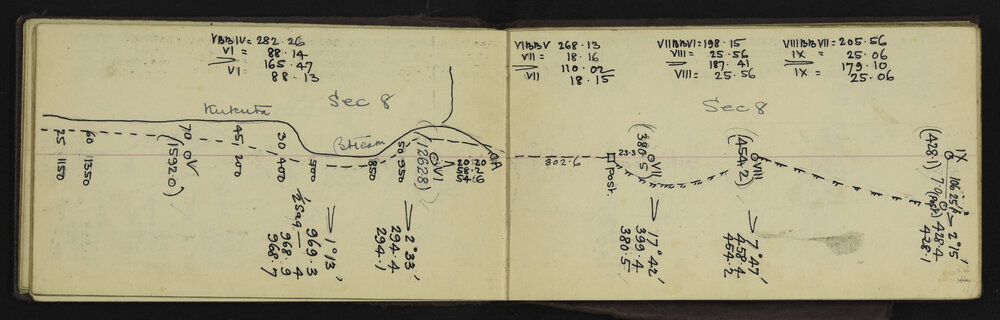 V BB IV = 282.26
VI = 88.14
165.47
VI 88.13
Sec 8
Kukuta
Stream
25 1150
60 1350
70
V
(1592.0)
45, 200
30, 400
500
850
50, 950
VI
(1262.8)
A
20.20
½ Sag
1°13'
969.3
968.9
968.7
2°33'
294.4
294.1
VII BB V 268.13
VII = 18.16
110.02
VII 18.15
802.6
Post
23.3
VII
(380.5)
17°42'
399.4
380.5
VII BB VI = 198.15
VIII = 25.56
187.41
VIII = 25.56
Sec 8
VIII
(454.2)
7°47'
458.4
454.2
VIII BB VII = 205.56
IX = 25.06
179.10
IX = 25.06
IX
(428.1)
2°15'
428.4
428.1